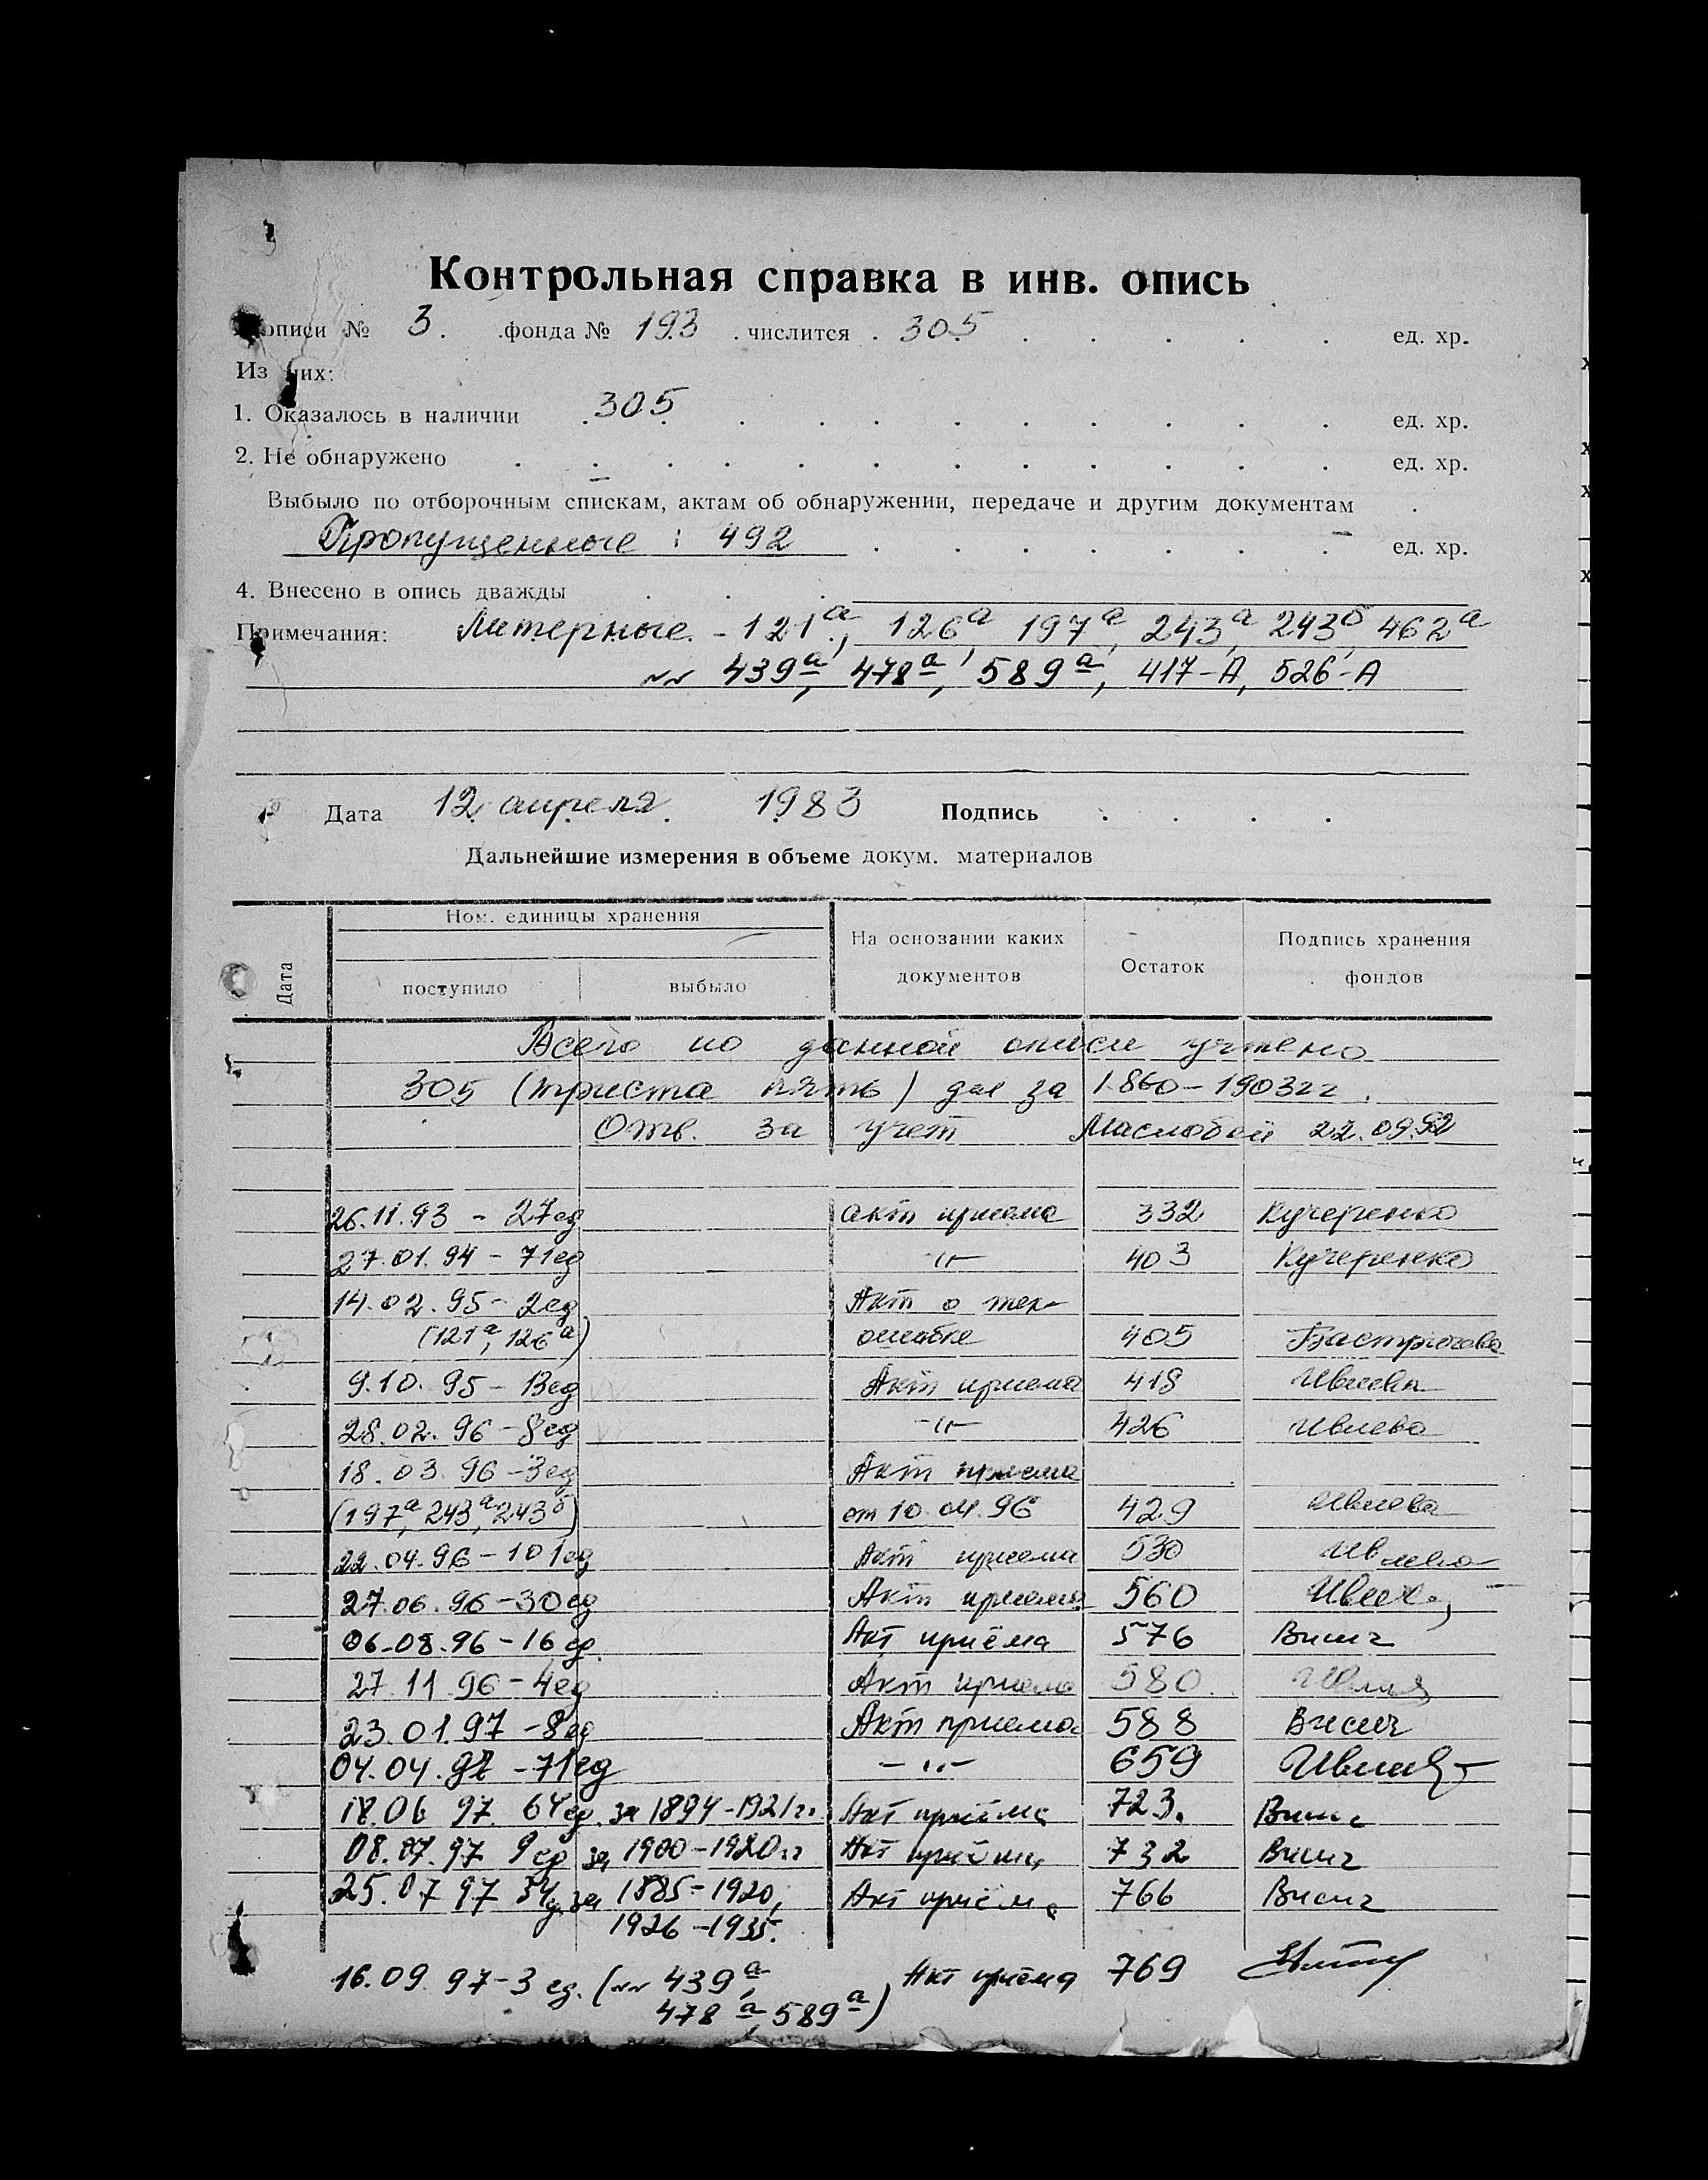 Контрольная справка в инв. опись
описи № 3. фонда № 193 числится 305 ед. хр.
Из них:
1. Оказалось в наличии 305 ед. хр.
2. Не обнаружено ед. хр.
Выбыло по отборочным спискам, актам об обнаружении, передаче и другим документам
Пропущенные : 492 – ед. хр.
4. Внесено в опись дважды
Примечания: Литерные - 121а, 126а, 197а, 243а, 243б, 462а
№№ 439а, 478а, 589а, 417-А, 526-А
Дата 12 апреля 1983 Подпись
Дальнейшие измерения в объеме докум. материалов
Дата Ном. единицы хранения На основании каких документов Остаток Подпись хранения фондов
поступило выбыло
Всего по данной описи учтено
305 (триста пять) дел за 1860-1903гг.
Отв. за учет Маслобой 22.09.92
26.11.93 - 27ед акт приема 332 Кучеренко
27.01.94 - 71ед -"- 403 Кучеренко
14.02.95 - 2ед Акт о тех.
(121а, 126а) ошибке 405
9.10.95 - 13ед Акт приема 418 Ивлева
28.02.96 - 8ед -"- 426 Ивлева
18.03.96 - 3ед Акт приема
(197а, 243а, 243б) от 10.04.96 429 Ивлева
22.04.96 - 101ед Акт приема 530 Ивлева
27.06.96 - 30ед Акт приема 560
06.08.96 - 16ед. Акт приёма 576
27.11.96 - 4ед Акт приема 580
23.01.97 - 8ед Акт приема 588
04.04.97 - 71ед -"- 659
18.06 97. 64ед. за 1894-1921гг. Акт приёма 723.
08.07.97 9ед за 1900-1920гг Акт приёма 732
25.07 97 34д. за 1885-1920, Акт приёма 766
1926-1935.
16.09.97 - 3 ед. (№№ 439а, Акт приёма 769
478а, 589а)